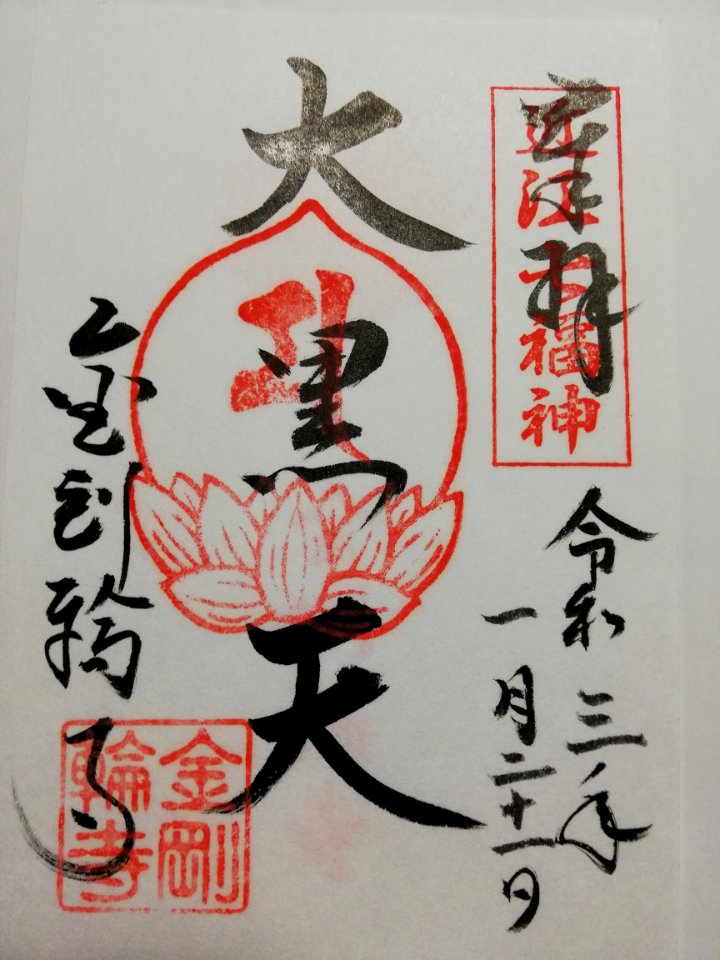 奉拝
近江七福神
令和三年
一月二十一日
大黒天
金剛輪寺
金剛輪寺